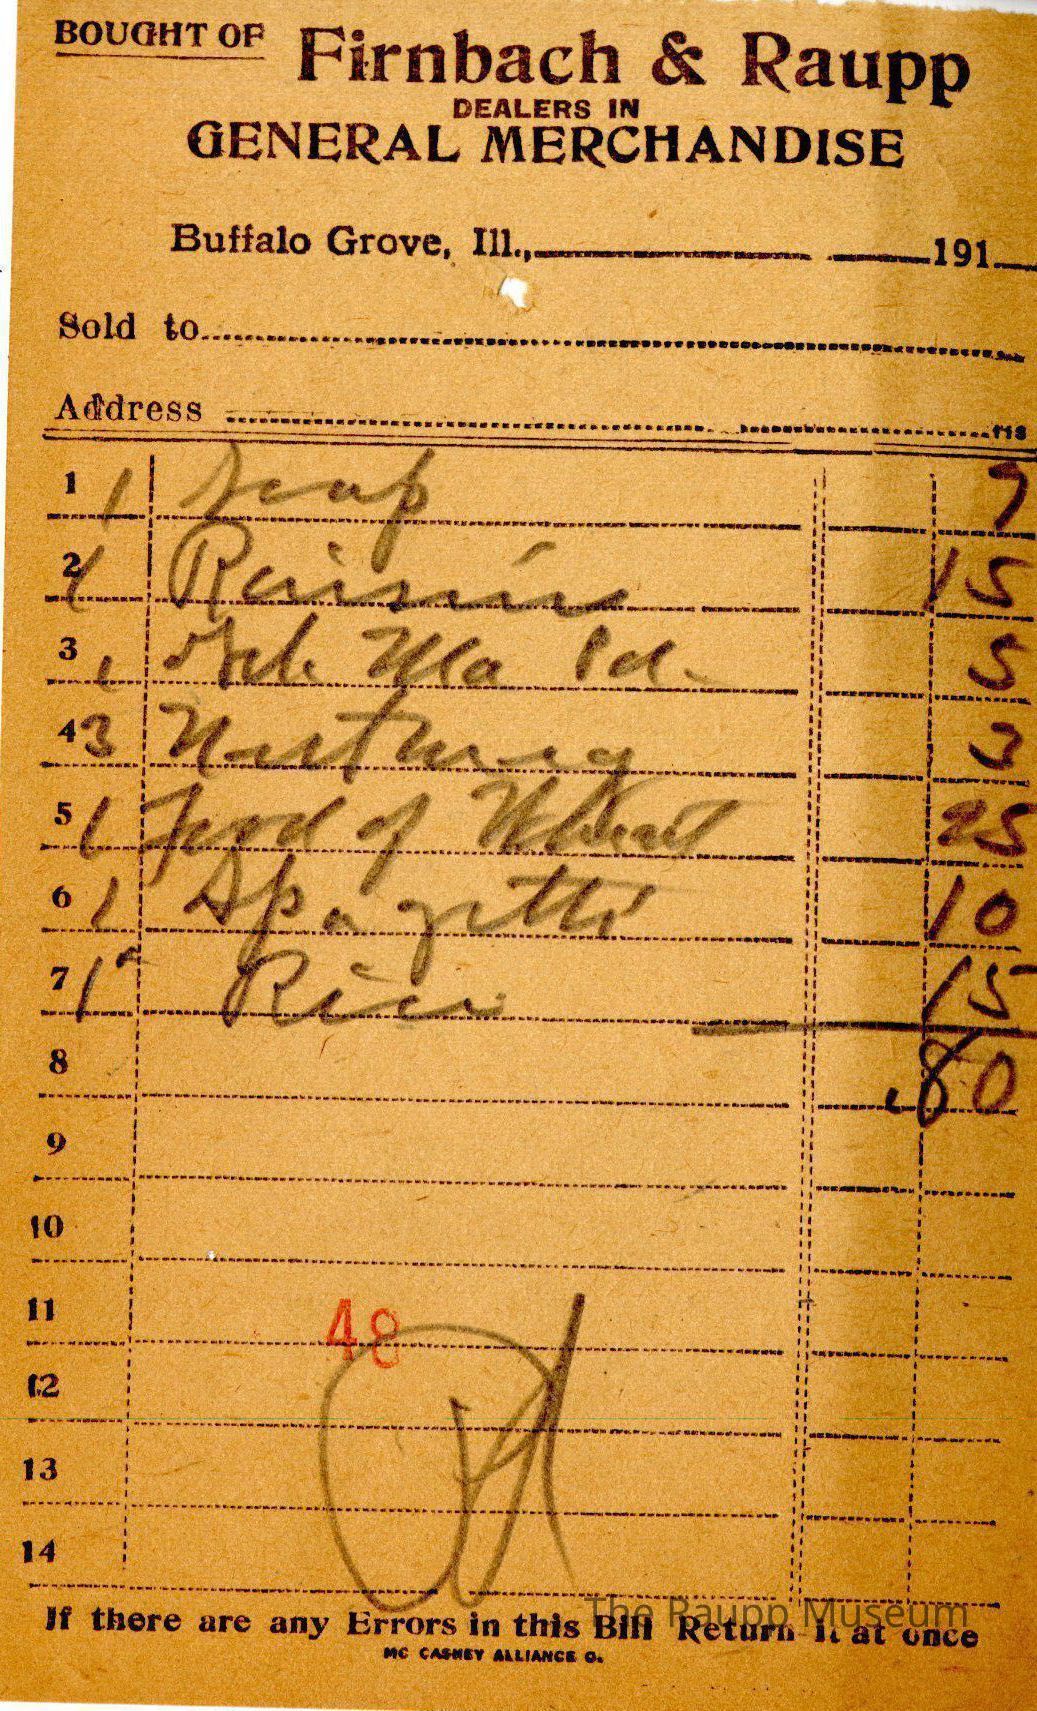 BOUGHT OF Firnbach & Raupp
DEALERS IN
GENERAL MERCHANDISE
Buffalo Grove, Ill., 191
Sold to
Address
1 1 Soap 7
2 1 Raisins 15
3 1 Pd. 5
4 3 Nutmeg 3
5 1 Food of Wheat 25
6 1 Spagetti 10
7 1 Rice 15
8 .80
9
10
11 48
12
13
14
The Raupp Museum
If there are any Errors in this Bill Return it at once
MC CASKEY ALLIANCE O.